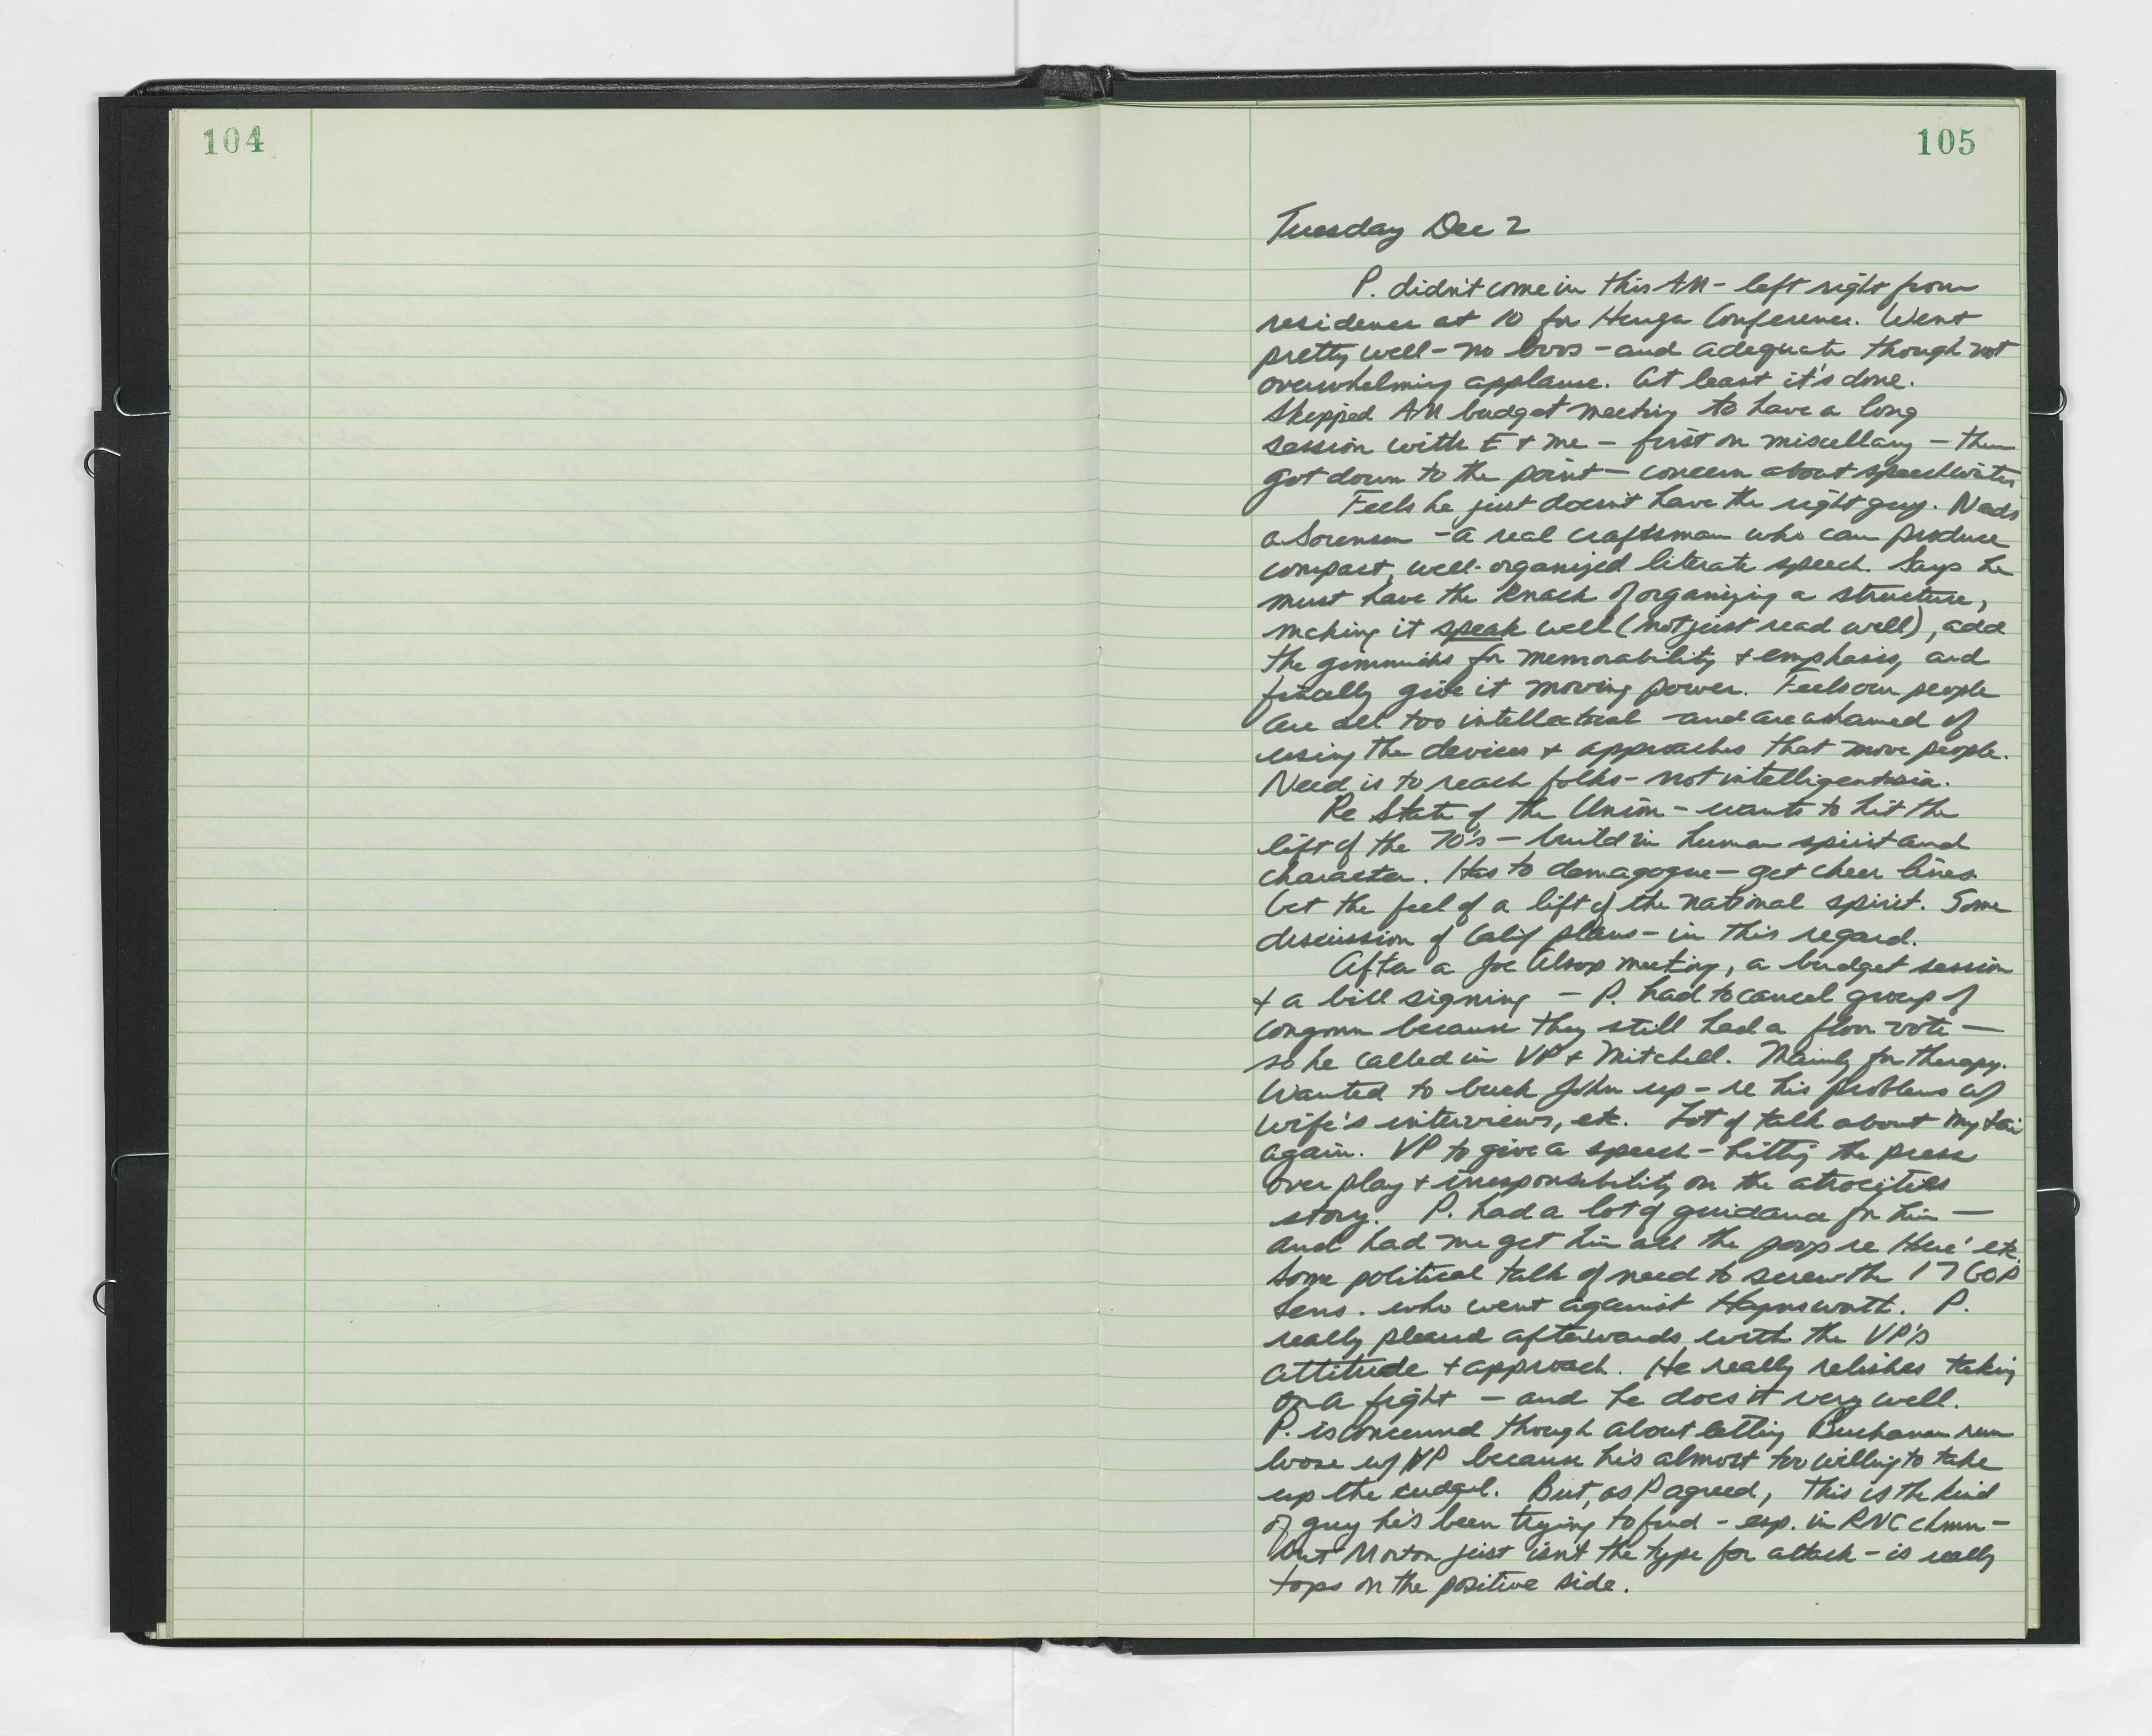 104
105
Tuesday Dec 2
P. didn't come in this AM - left right from
residence at 10 for Hunger Conference. Went
pretty well - no boos - and adequate though not
overwhelming applause. At least it's done.
Skipped AM budget meeting to have a long
session with E + me - first on miscellany - then
got down to the point - concern about speechwriter
Feels he just doesn't have the right guy. Needs
a Sorensen - a real craftsman who can produce
compact, well-organized literate speech. Says he
must have the knack of organizing a structure,
making it speak well (not just read well), add
the gimmicks for memorability + emphasis, and
finally give it moving power. Feels our people
are all too intellectual and are ashamed of
using the devices + approaches that move people.
Need is to reach folks - not intelligentsia.
Re State of the Union - wants to hit the
lift of the 70's - build in human spirit and
character. Has to demagogue - get cheer lines
Get the feel of a lift of the national spirit. Some
discussion of Calif plans - in this regard.
After a Joe Alsop meeting, a budget session
+ a bill signing - P. had to cancel group of
congmn because they still had a floor vote -
so he called in VP + Mitchell. Mainly for therapy.
Wanted to buck John up - re his problems w/
wife's interviews, etc. Lot of talk about My Lai
again. VP to give a speech - hitting the press
over play + irresponsibility on the atrocities
story. P. had a lot of guidance for him -
and had me get him all the poop re Hue' etc.
Some political talk of need to screw the 17 GOP
Sens. who went against Haynsworth. P.
really pleased afterwards with the VP's
attitude + approach. He really relishes taking
on a fight - and he does it very well.
P. is concerned though about letting Buchanan run
loose w/ VP because he's almost too willing to take
up the cudgel. But, as P agreed, this is the kind
of guy he's been trying to find - esp. in RNC chmn -
but Morton just isn't the type for attack - is really
tops on the positive side.